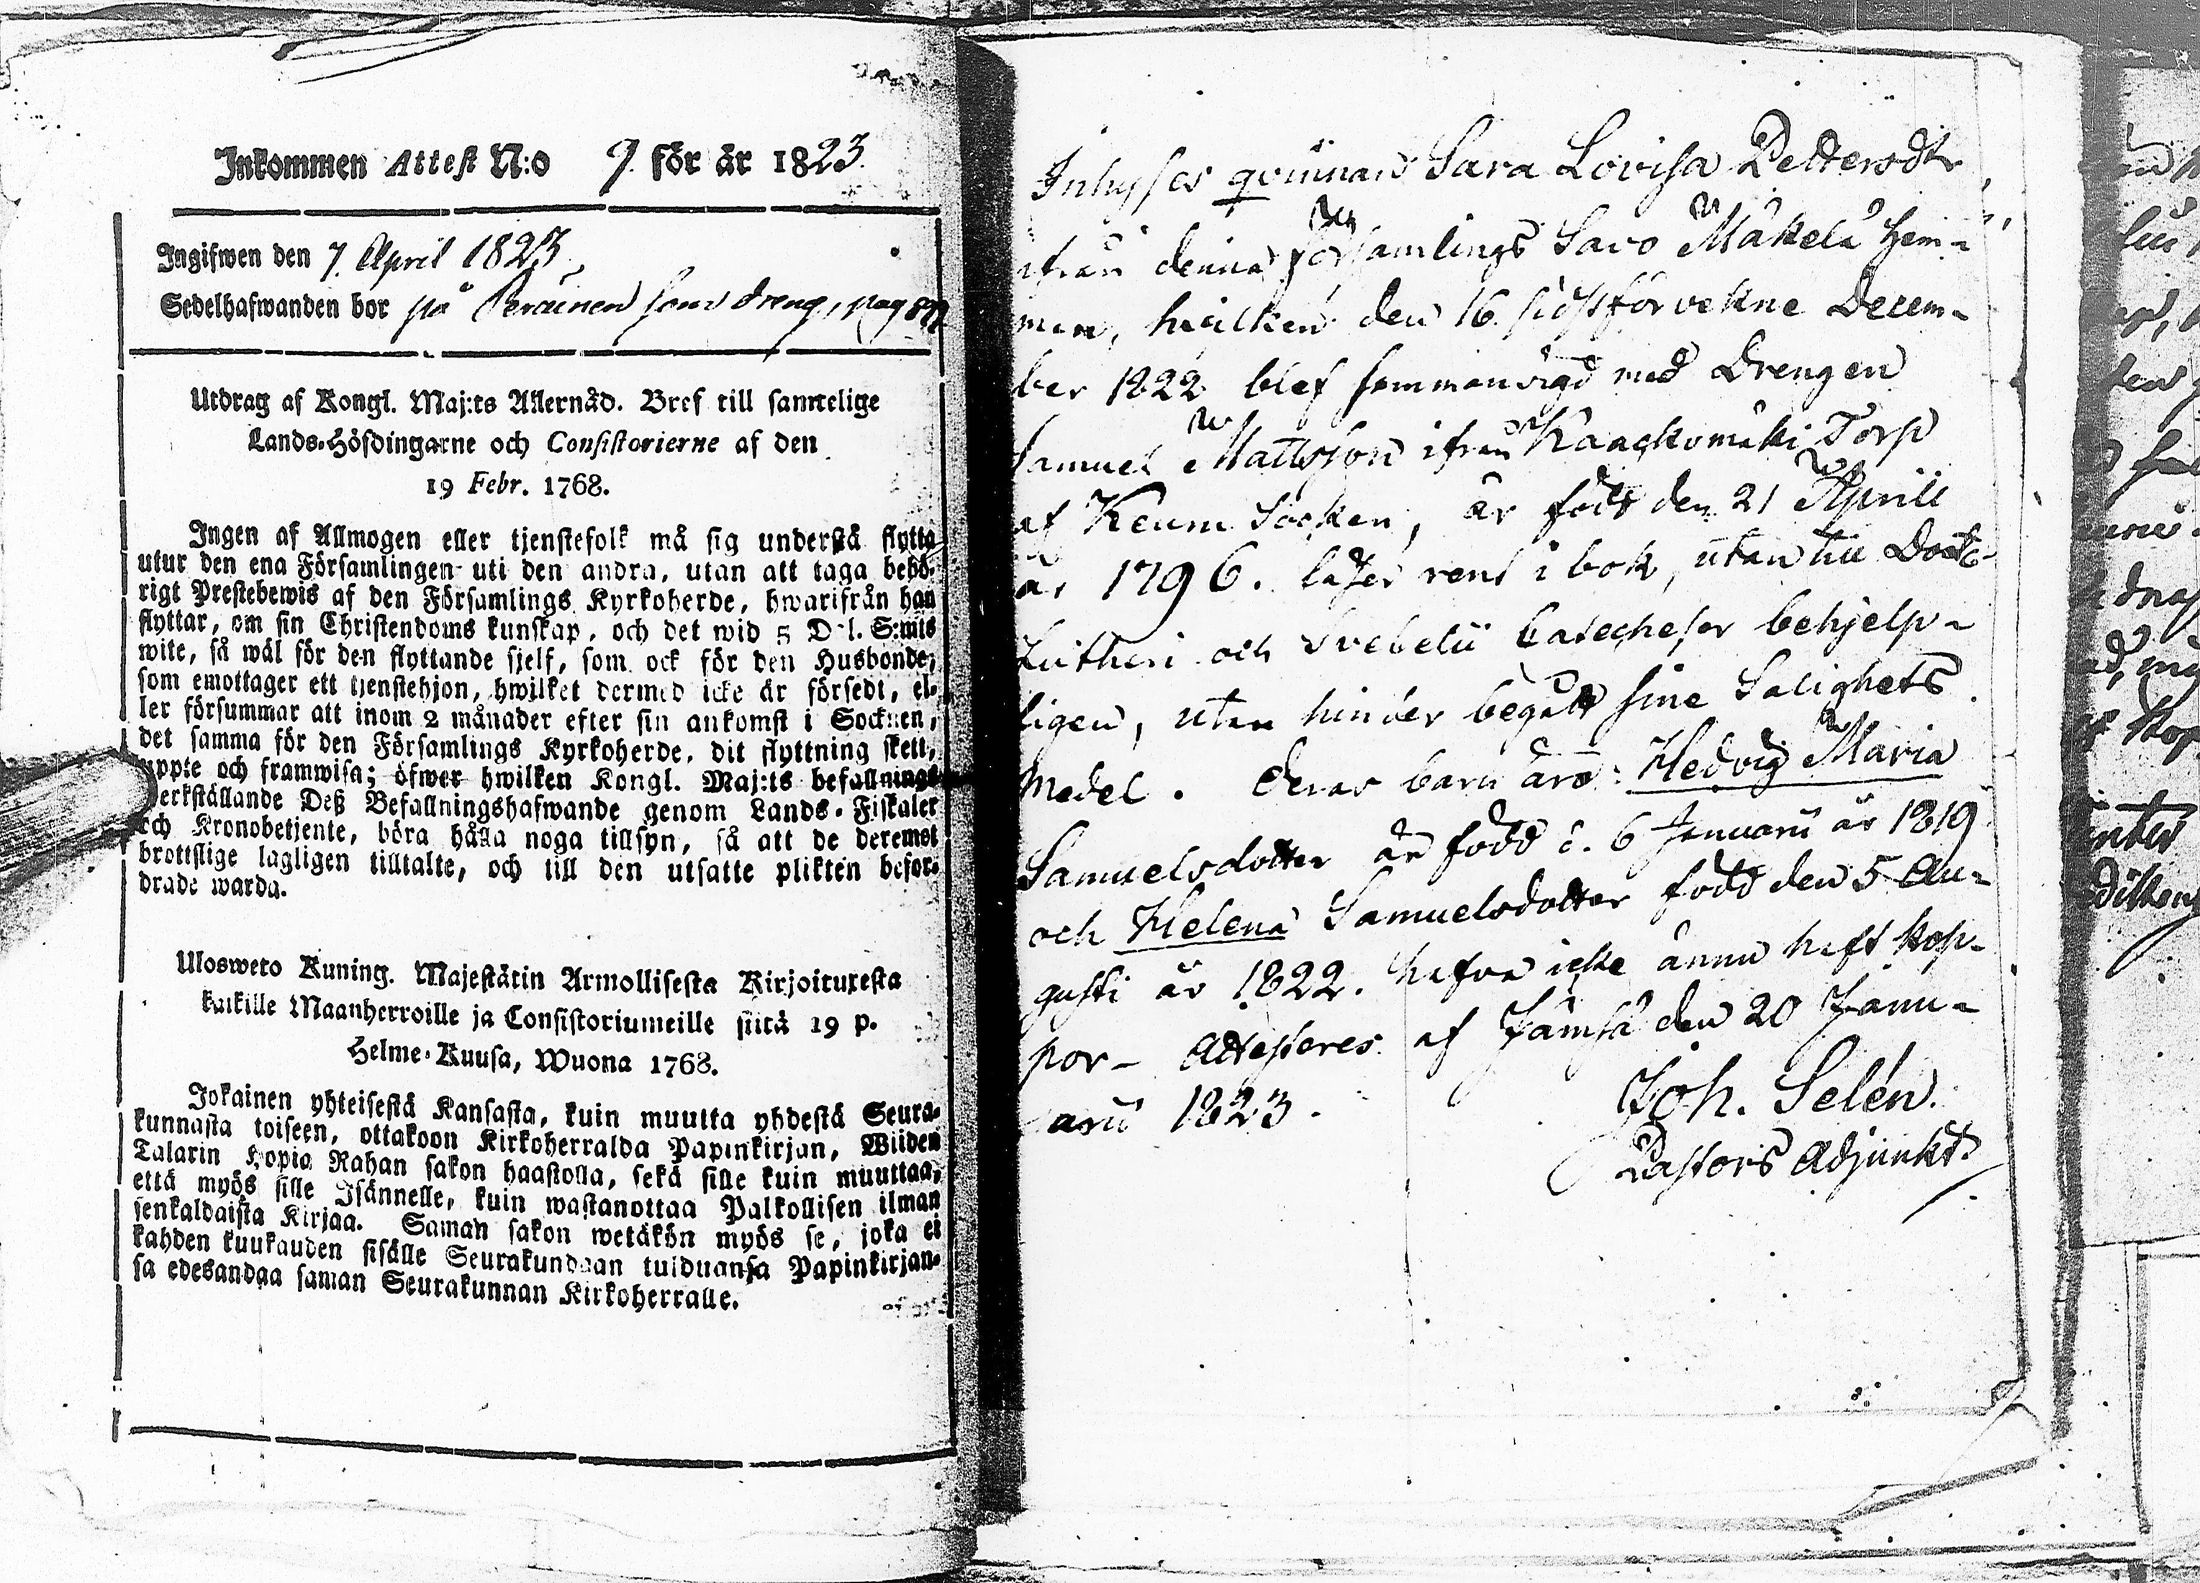 Inkommen Attest N:o 9. för år 1823.
Ingifwen den 7. April 1823.
Sedelhafwanden bor på Peräinen som dreng, pag
Utdrag af Kongl. Maj:ts Allernåd. Bref till samtelige
Lands-Höfdingarne och Consistorierne af den
19 Febr. 1768.
Ingen af Allmogen eller tjenstefolk må sig understå flytta
utur den ena Församlingen uti den andra, utan att taga behö-
rigt Prestebewis af den Församlings Kyrkoherde, hwarifrån han
flyttar, om sin Christendoms kunskap, och det wid 5 Dal. S:mts
wite, så wäl för den flyttande sjelf, som ock för den Husbonde,
som emottager ett tjenstehjon, hwilket dermed icke är försedt, el-
ler försummar att inom 2 månader efter sin ankomst i Socknen,
det samma för den Församlings Kyrkoherde, dit flyttning skett,
uppte och framwisa; öfwer hwilken Kongl. Maj:ts befallnings
werkställande Deß Befallningshafwande genom Lands-Fiskaler
och Kronobetjente, böra hålla noga tillsyn, så att de deremot
brottslige lagligen tilltalte, och till den utsatte plikten befor-
drade warda.
Ulosweto Kuning. Majestätin Armollisesta Kirjoituxesta
kaikille Maanherroille ja Consistoriumeille siitä 19 p.
Helme-Kuusa, Wuona 1768.
Jokainen yhteisestä Kansasta, kuin muutta yhdestä Seura-
kunnasta toiseen, ottakoon Kirkoherralda Papinkirjan, Wiiden
Talarin Hopia Rahan sakon haastolla, sekä sille kuin muuttaa,
että myös sille Isännelle, kuin wastanottaa Palkollisen ilman
senkaldaista Kirjaa. Saman sakon wetäkön myös se, joka ei
kahden kuukauden sisälle Seurakundaan tulduansa Papinkirjan-
sa edesandaa saman Seurakunnan Kirkoherralle.
Inhyses qvinnan Sara Lovisa Pettersdtr
ifrån denna Församlings Savo Mäkelä hem-
man, hvilken den 16 sidstförvekne Decem-
ber 1822 blef sammanvigd med Drengen
Samuel Mattsson ifrån Torp
af Keuru Socken, är född den 21 Aprill
år 1796. läser rent i bok, utan till Doct:
Lutheri och Svebelii Catecheser behjelp-
ligen, utan hinder begått sine Salighets
Medel. Deras barn äro: Hedvig Maria
Samuelsdotter är född d. 6 Januarii år 1819
och Helena Samuelsdotter född den 5 Au-
gusti år 1822. hafva icke ännu haft kop-
por – Attesteres af Jämsä den 20 Janu-
arii 1823.
Joh. Selén.
Pastors Adjunkt.